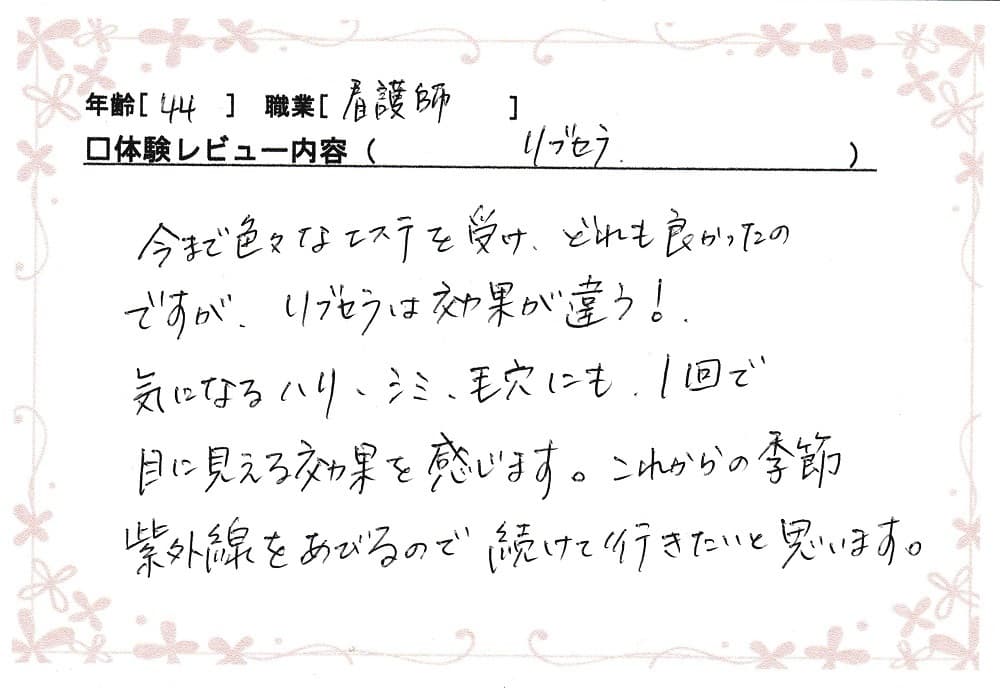 年齢[ 44 ] 職業[ 看護師 ]
□体験レビュー内容( リブセラ. )
今まで色々なエステを受け、どれも良かったの
ですが、リブセラは効果が違う!.
気になるハリ、シミ、毛穴にも、1回で
目に見える効果を感じます。これからの季節
紫外線をあびるので続けて行きたいと思います。